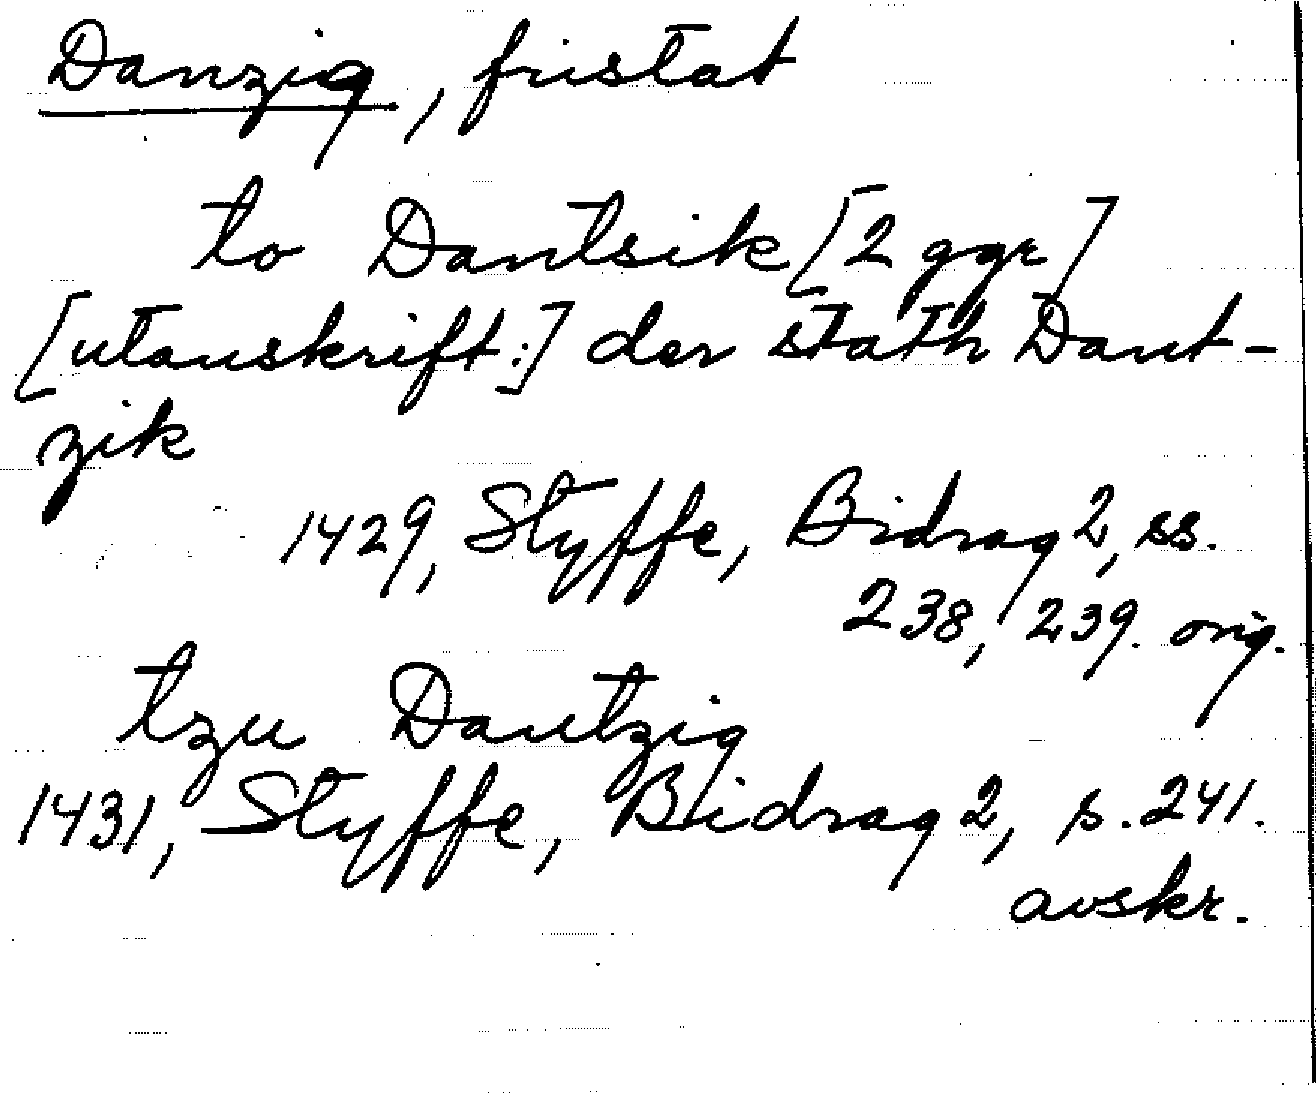 Danzig, fristat
to Dantsik [2 ggr]
[utanskrift:] der stath Dant-
zik
1429, Styffe, Bidrag 2, ss.
238, 239. orig.
tzu Dantzig
1431, Styffe, Bidrag 2, s. 241.
avskr.